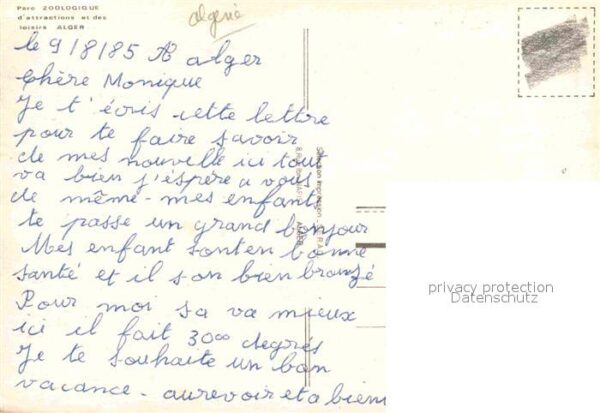 Parc ZOOLOGIQUE
d'attractions et des
loisirs ALGER
algerie
le 9/8/85 A alger
Chère Monique
Je t'écris cette lettre
pour te faire savoir
de mes nouvelle ici tout
va bien j'éspère a vous
de même - mes enfants
te passe un grand bonjour
Mes enfant sont en bonne
santé et il son bien bronzé
Pour moi sa va mieux
ici il fait 30°° degrés
Je te souhaite un bon
vacance - aurevoir et a bien
ALGER
privacy protection
Datenschutz